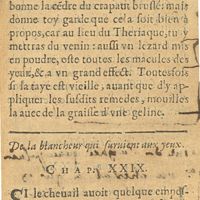 bonne la cedre du crapaut bruslé: mais
donne toy garde que cela soit bien à
propos, car au lieu du Theriaque, tu y
mettras du venin: aussi vn lezard mis
en poudre, oste toutes les macules des
yeux, & a vn grand effect. Toutesfois
si la taye est vieille, auant que d'y ap-
pliquer les susdits remedes, mouillés
la auec de la graisse d'vne geline.
De la blancheur qui suruient aux yeux.
CHAP. XXIX.
SI le cheual auoit quelque empes-